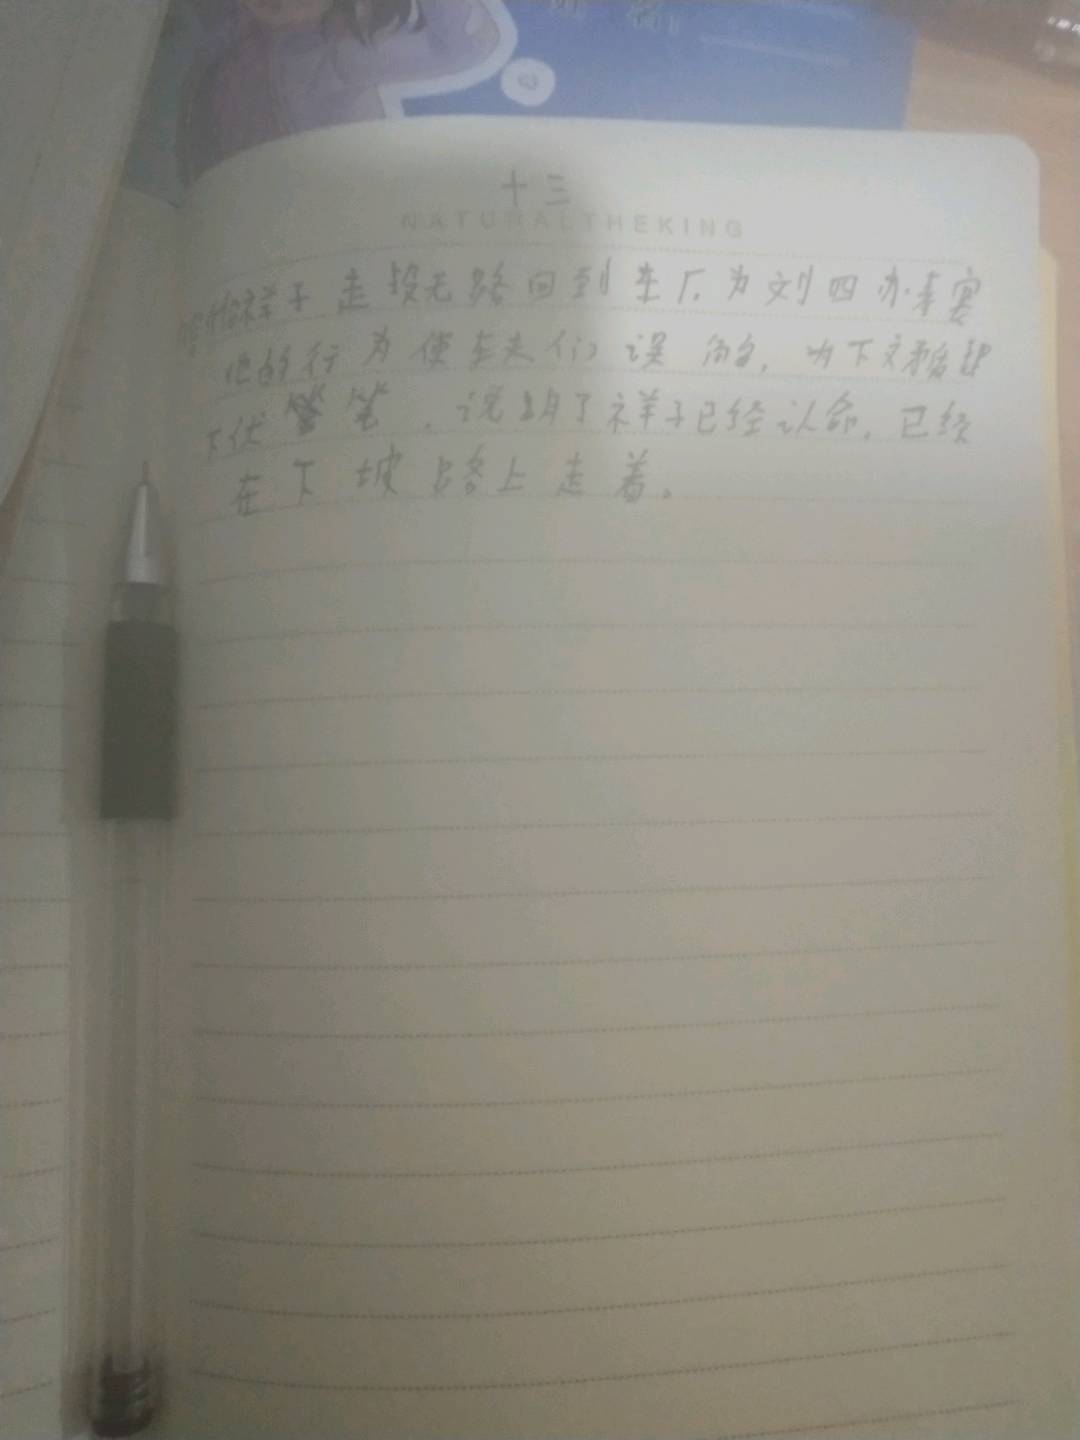 十三
NATURALTHEKING
祥子走投无路回到车厂为刘四办寿宴
他的行为使车夫们误会，为下文埋
下伏笔，说明了祥子已经认命，已经
在下坡路上走着。